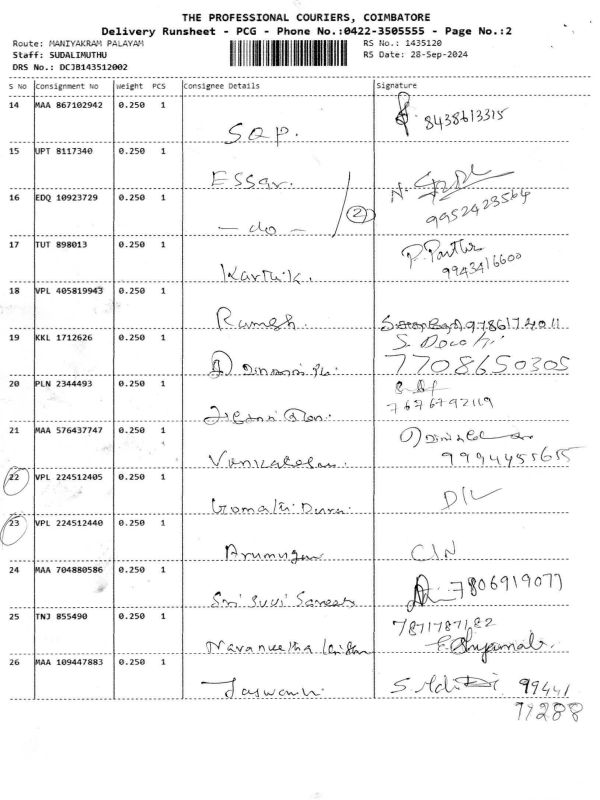 THE PROFESSIONAL COURIERS, COIMBATORE
Delivery Runsheet - PCG - Phone No.:0422-3505555 - Page No.:2
Route: MANIYAKRAM PALAYAM
RS No.: 1435120
Staff: SUDALIMUTHU
RS Date: 28-Sep-2024
DRS No.: DCJB143512002
S No Consignment No Weight PCS Consignee Details Signature
14 MAA 867102942 0.250 1 SQP. 8438613315
15 UPT 8117340 0.250 1 ESSar.
16 EDQ 10923729 0.250 1 - do - 2 N. 9952423564
17 TUT 898013 0.250 1 Karthik. 9943416600
18 VPL 405819943 0.250 1 Ramesh. 9786174011
19 KKL 1712626 0.250 1 7708650305
20 PLN 2344493 0.250 1 7676792119
21 MAA 576437747 0.250 1 9994455655
22 VPL 224512405 0.250 1 D/L
23 VPL 224512440 0.250 1 Arumugam C/N
24 MAA 704880586 0.250 1 7806919077
25 TNJ 855490 0.250 1 7871787182
26 MAA 109447883 0.250 1 Jaswanth. 99441
79288